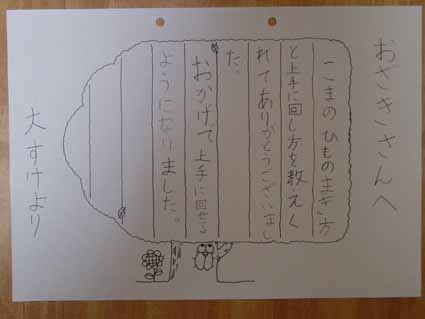 おざきさんへ
こまのひものまき方
と上手に回し方を教えく
れてありがとうございまし
た。
おかげで上手に回せる
ようになりました。
大すけより